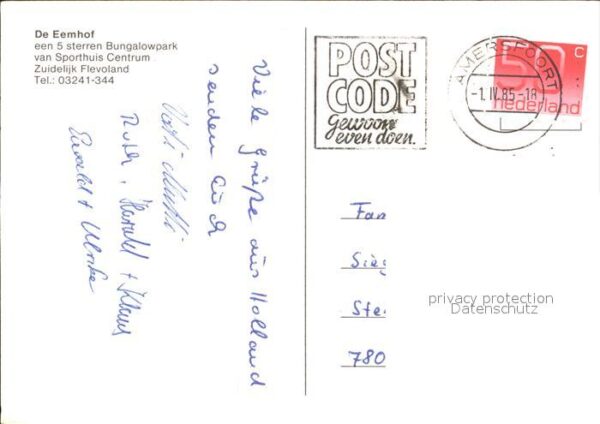 De Eemhof
een 5 sterren Bungalowpark
van Sporthuis Centrum
Zuidelijk Flevoland
Tel.: 03241-344
POST
CODE
Gewoon
even doen.
AMERSFOORT
-1.IV.85-18
50 C
nederland
Viele Grüße aus Holland
senden Euch
Ruth, Harald + Klaus
Ewald + Ulrike
Fam
Sieg
Ste
780
privacy protection
Datenschutz